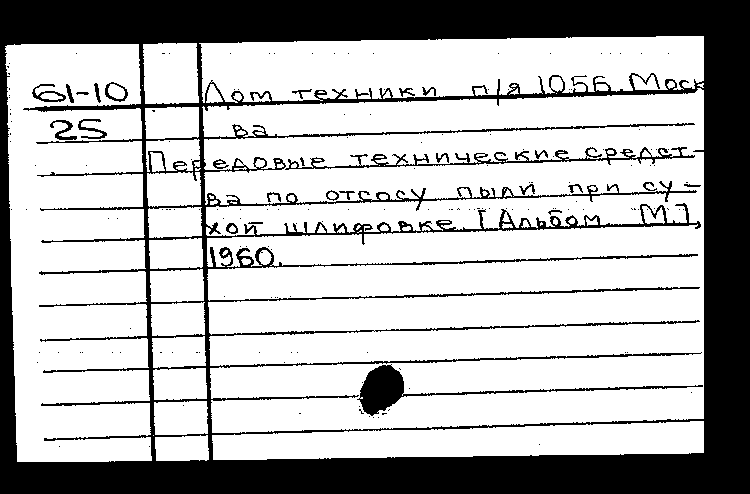 61-10 Дом техники п/я 1056. Моск
25 ва.
Передовые технические средст-
ва по отсосу пыли при су-
хой шлифовке. [Альбом М.],
1960.